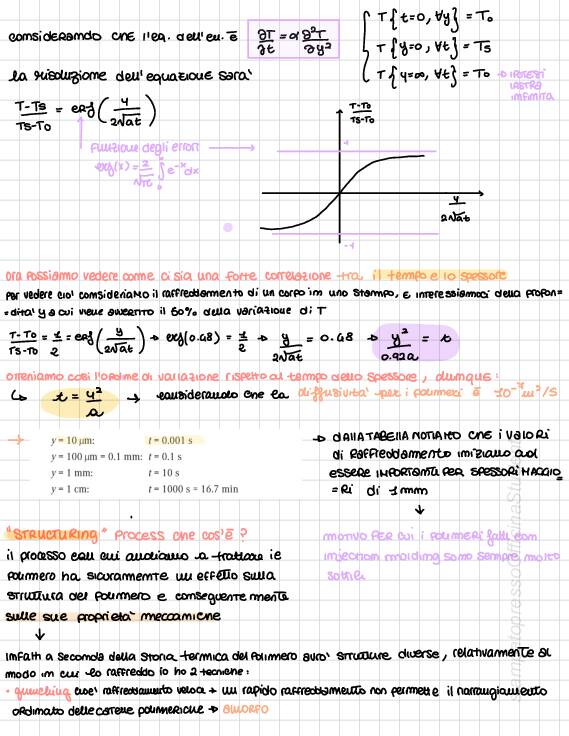 considerando che l'eq. dell'en. è ∂T/∂t = α ∂²T/∂y²
T{t=0, ∀y} = T₀
T{y=0, ∀t} = Ts
T{y=∞, ∀t} = T₀ → IPOTESI LASTRA INFINITA
la risoluzione dell'equazione sarà
T-Ts/Ts-T₀ = erf(y/2√at)
funzione degli errori →
erf(x) = 2/√π ∫₀ e⁻ˣdx
T-T₀/Ts-T₀
y/2√at
-1
ora possiamo vedere come ci sia una forte correlazione tra il tempo e lo spessore
per vedere ciò consideriamo il raffreddamento di un corpo in uno stampo, e interessiamoci della profon=
=dità y a cui viene avvertito il 50% della variazione di T
T-T₀/Ts-T₀ = 1/2 = erf(y/2√at) → erf(0.48) = 1/2 → y/2√at = 0.48 → y²/0.92a = t
otteniamo così l'ordine di variazione rispetto al tempo dello spessore, dunque:
↳ t = y²/a → considerando che la diffusività per i polimeri è 10⁻⁷m²/s
→ y = 10 μm: t = 0.001 s
y = 100 μm = 0.1 mm: t = 0.1 s
y = 1 mm: t = 10 s
y = 1 cm: t = 1000 s = 16.7 min
→ DALLA TABELLA NOTIAMO CHE I VALORI
di Raffreddamento iniziano ad
ESSERE IMPORTANTI PER SPESSORI MAGGIO=
=RI di 1mm
↓
MOTIVO PER cui i POLIMERI fatti con
injection molding sono sempre molto
sottili
"STRUCTURING" PROCESS che cos'è ?
il processo con cui andiamo a trattare il
polimero ha sicuramente un effetto sulla
struttura del polimero e conseguentemente
sulle sue proprietà meccaniche
↓
Infatti a seconda della storia termica del polimero avrò strutture diverse, relativamente al
modo in cui lo raffreddo io ho 2 tecniche:
• quenching cioè raffreddamento veloce → un rapido raffreddamento non permette il riarrangiamento
ordinato delle catene polimeriche → AMORFO